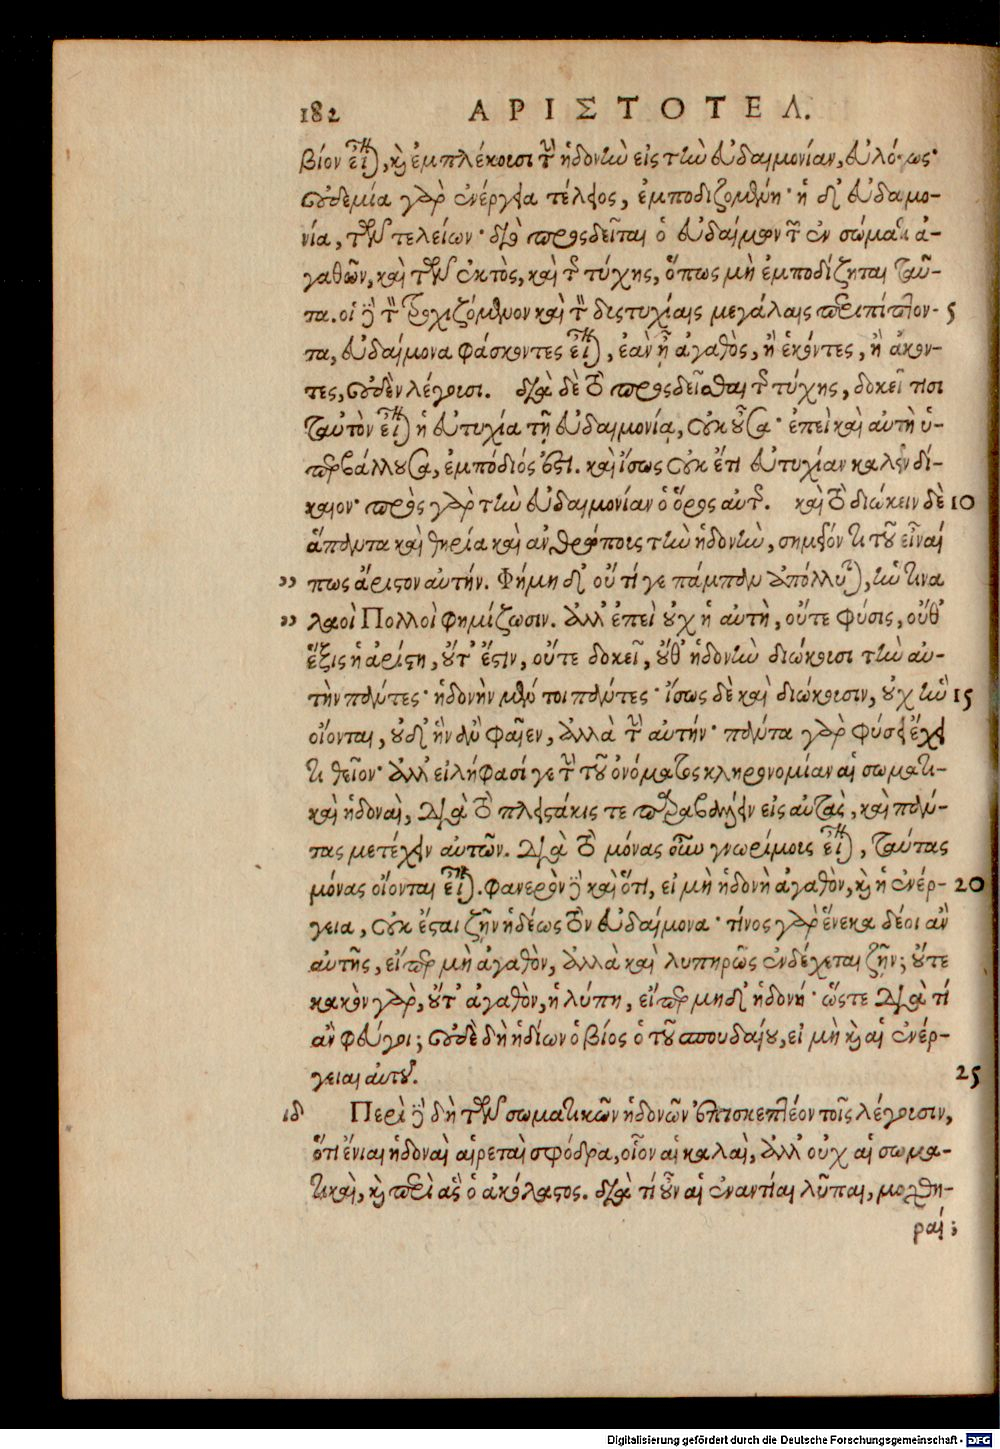 182 ΑΡΙΣΤΟΤΕΛ.
βίον εἶναι, καὶ ἐμπλέκουσι τὴν ἡδονὴν εἰς τὴν εὐδαιμονίαν, εὐλόγως·
οὐδεμία γὰρ ἐνέργεια τέλειος, ἐμποδιζομένη· ἡ δ' εὐδαιμο-
νία, τῶν τελείων· διὸ προσδεῖται ὁ εὐδαίμων τῶν ἐν σώματι ἀ-
γαθῶν, καὶ τῶν ἐκτὸς, καὶ τῆς τύχης, ὅπως μὴ ἐμποδίζηται ταῦ-
τα. οἱ δὲ τὸν τροχιζόμενον καὶ τὸν δυστυχίαις μεγάλαις περιπίπτον- 5
τα, εὐδαίμονα φάσκοντες εἶναι, ἐὰν ᾖ ἀγαθὸς, ἢ ἑκόντες, ἢ ἄκον-
τες, οὐδὲν λέγουσι. διὰ δὲ τὸ προσδεῖσθαι τῆς τύχης, δοκεῖ τισι
ταὐτὸν εἶναι ἡ εὐτυχία τῇ εὐδαιμονίᾳ, οὐκ οὖσα· ἐπεὶ καὶ αὐτὴ ὑ-
περβάλλουσα, ἐμπόδιός ἐστι. καὶ ἴσως οὐκ ἔτι εὐτυχίαν καλεῖν δί-
καιον· πρὸς γὰρ τὴν εὐδαιμονίαν ὁ ὅρος αὐτῆς. καὶ τὸ διώκειν δὲ 10
ἅπαντα καὶ θηρία καὶ ἀνθρώπους τὴν ἡδονὴν, σημεῖόν τι τοῦ εἶναί
„ πως ἄριστον αὐτήν. Φήμη δ' οὔ τί γε πάμπαν ἀπόλλυται, ἥν τινα
„ λαοὶ Πολλοὶ φημίζωσιν. ἀλλ' ἐπεὶ οὐχ ἡ αὐτὴ, οὔτε φύσις, οὔθ'
ἕξις ἡ ἀρίστη, οὔτ' ἔστιν, οὔτε δοκεῖ, οὐθ' ἡδονὴν διώκουσι τὴν αὐ-
τὴν πάντες· ἡδονὴν μέν τοι πάντες· ἴσως δὲ καὶ διώκουσιν, οὐχ ἣν 15
οἴονται, οὐδ' ἣν ἂν φαῖεν, ἀλλὰ τὴν αὐτήν· πάντα γὰρ φύσει ἔχει
τι θεῖον· ἀλλ' εἰλήφασί γε τὴν τοῦ ὀνόματος κληρονομίαν αἱ σωματι-
καὶ ἡδοναὶ, διὰ τὸ πλειστάκις τε παραβάλλειν εἰς αὐτὰς, καὶ πάν-
τας μετέχειν αὐτῶν. διὰ τὸ μόνας οὖν γνωρίμους εἶναι, ταύτας
μόνας οἴονται εἶναι. φανερὸν δὲ καὶ ὅτι, εἰ μὴ ἡδονὴ ἀγαθὸν, καὶ ἡ ἐνέρ- 20
γεια, οὐκ ἔσται ζῆν ἡδέως τὸν εὐδαίμονα· τίνος γὰρ ἕνεκα δέοι ἂν
αὐτῆς, εἴπερ μὴ ἀγαθὸν, ἀλλὰ καὶ λυπηρῶς ἐνδέχεται ζῆν; οὔτε
κακὸν γὰρ, οὔτ' ἀγαθὸν, ἡ λύπη, εἴπερ μηδ' ἡδονή· ὥστε διὰ τί
ἂν φεύγοι; οὐδὲ δὴ ἡδίων ὁ βίος ὁ τοῦ σπουδαίου, εἰ μὴ καὶ αἱ ἐνέρ-
γειαι αὐτοῦ. 25
ιδ Περὶ δὲ δὴ τῶν σωματικῶν ἡδονῶν ἐπισκεπτέον τοῖς λέγουσιν,
ὅτι ἔνιαι ἡδοναὶ αἱρεταὶ σφόδρα, οἷον αἱ καλαὶ, ἀλλ' οὐχ αἱ σωμα-
τικαὶ, καὶ περὶ ἃς ὁ ἀκόλαστος. διὰ τί οὖν αἱ ἐναντίαι λῦπαι, μοχθη-
ραί;
Digitalisierung gefördert durch die Deutsche Forschungsgemeinschaft - DFG